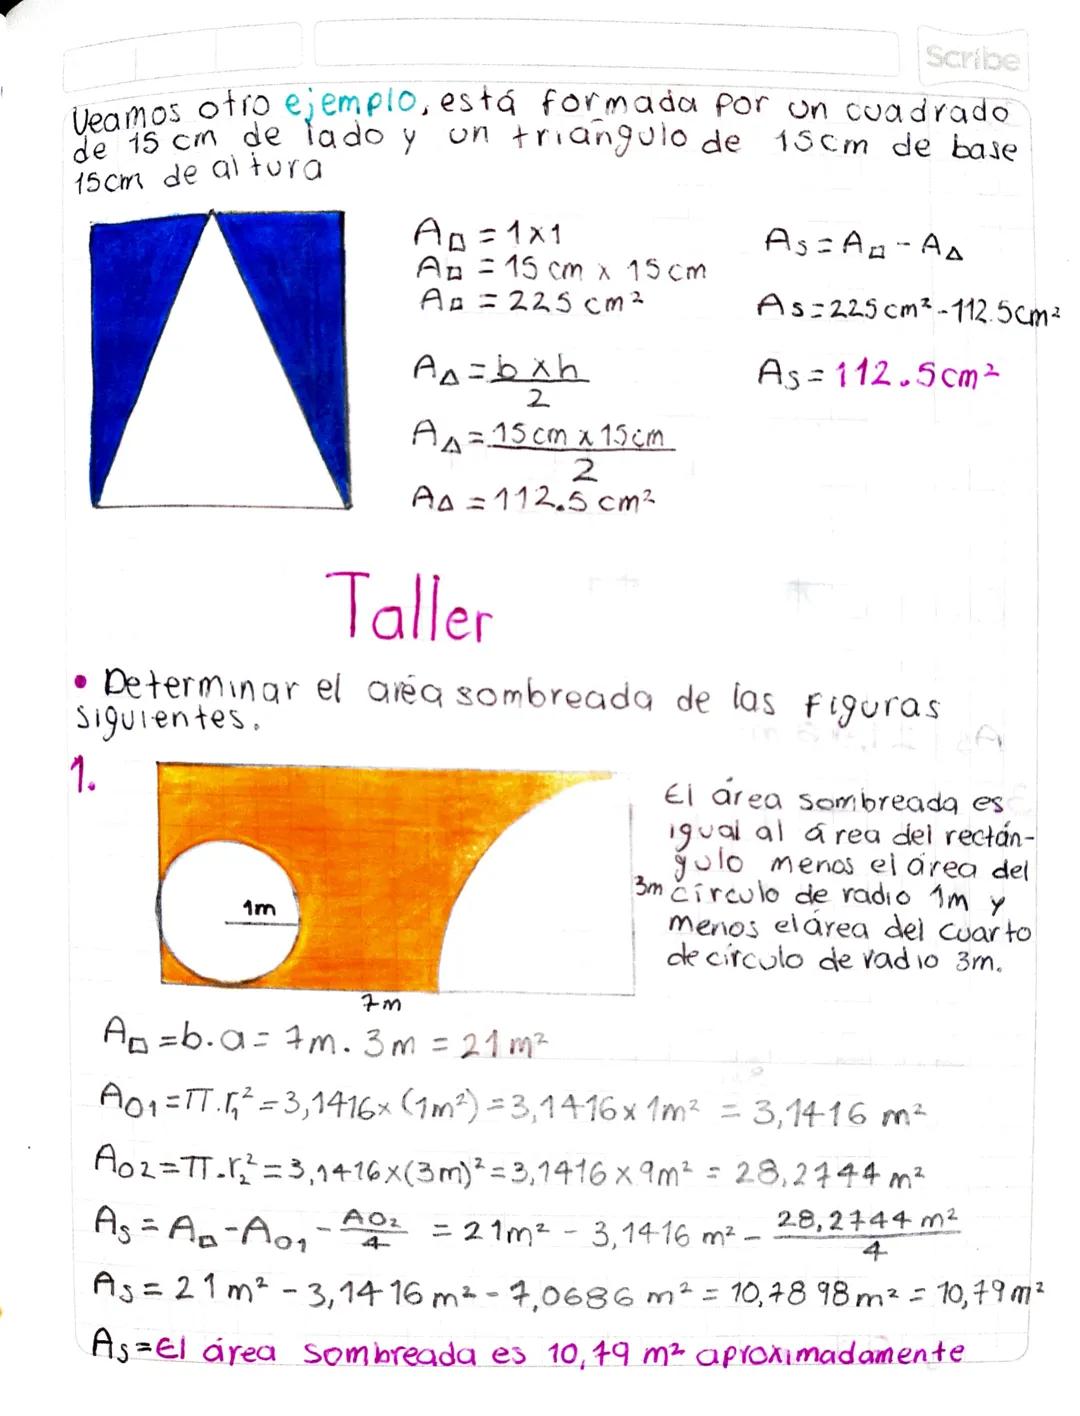 Scribe
Veamos otro ejemplo, está formada por un cuadrado
de 15 cm de lado y un triángulo de 15cm de base
15cm de altura
A□ = 1x1
A□ = 15 cm x 15 cm
A□ = 225 cm²
A△ = b x h / 2
A△ = 15 cm x 15 cm / 2
A△ = 112.5 cm²
As = A□ - A△
As = 225 cm² - 112.5cm²
As = 112.5cm²
Taller
• Determinar el aréa sombreada de las Figuras
siguientes.
1.
1m
3m
7m
El área sombreada es
igual al área del rectán-
gulo menos el área del
círculo de radio 1m y
menos el área del cuarto
de círculo de radio 3m.
A□ = b.a = 7m. 3m = 21 m²
AO1 = π.r₁² = 3,1416x (1m²) = 3,1416 x 1m² = 3,1416 m²
AO2 = π.r₂² = 3,1416x(3m)² = 3,1416 x 9m² = 28,2744 m²
As = A□ - AO1 - AO2/4 = 21m² - 3,1416 m² - 28,2744 m²/4
As = 21 m² - 3,1416 m² - 7,0686 m² = 10,7898m² = 10,79m²
As = El área sombreada es 10,79 m² aproximadamente